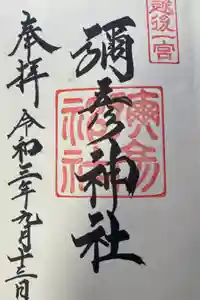 越後一宮
彌彦神社
奉拝
令和三年九月十三日